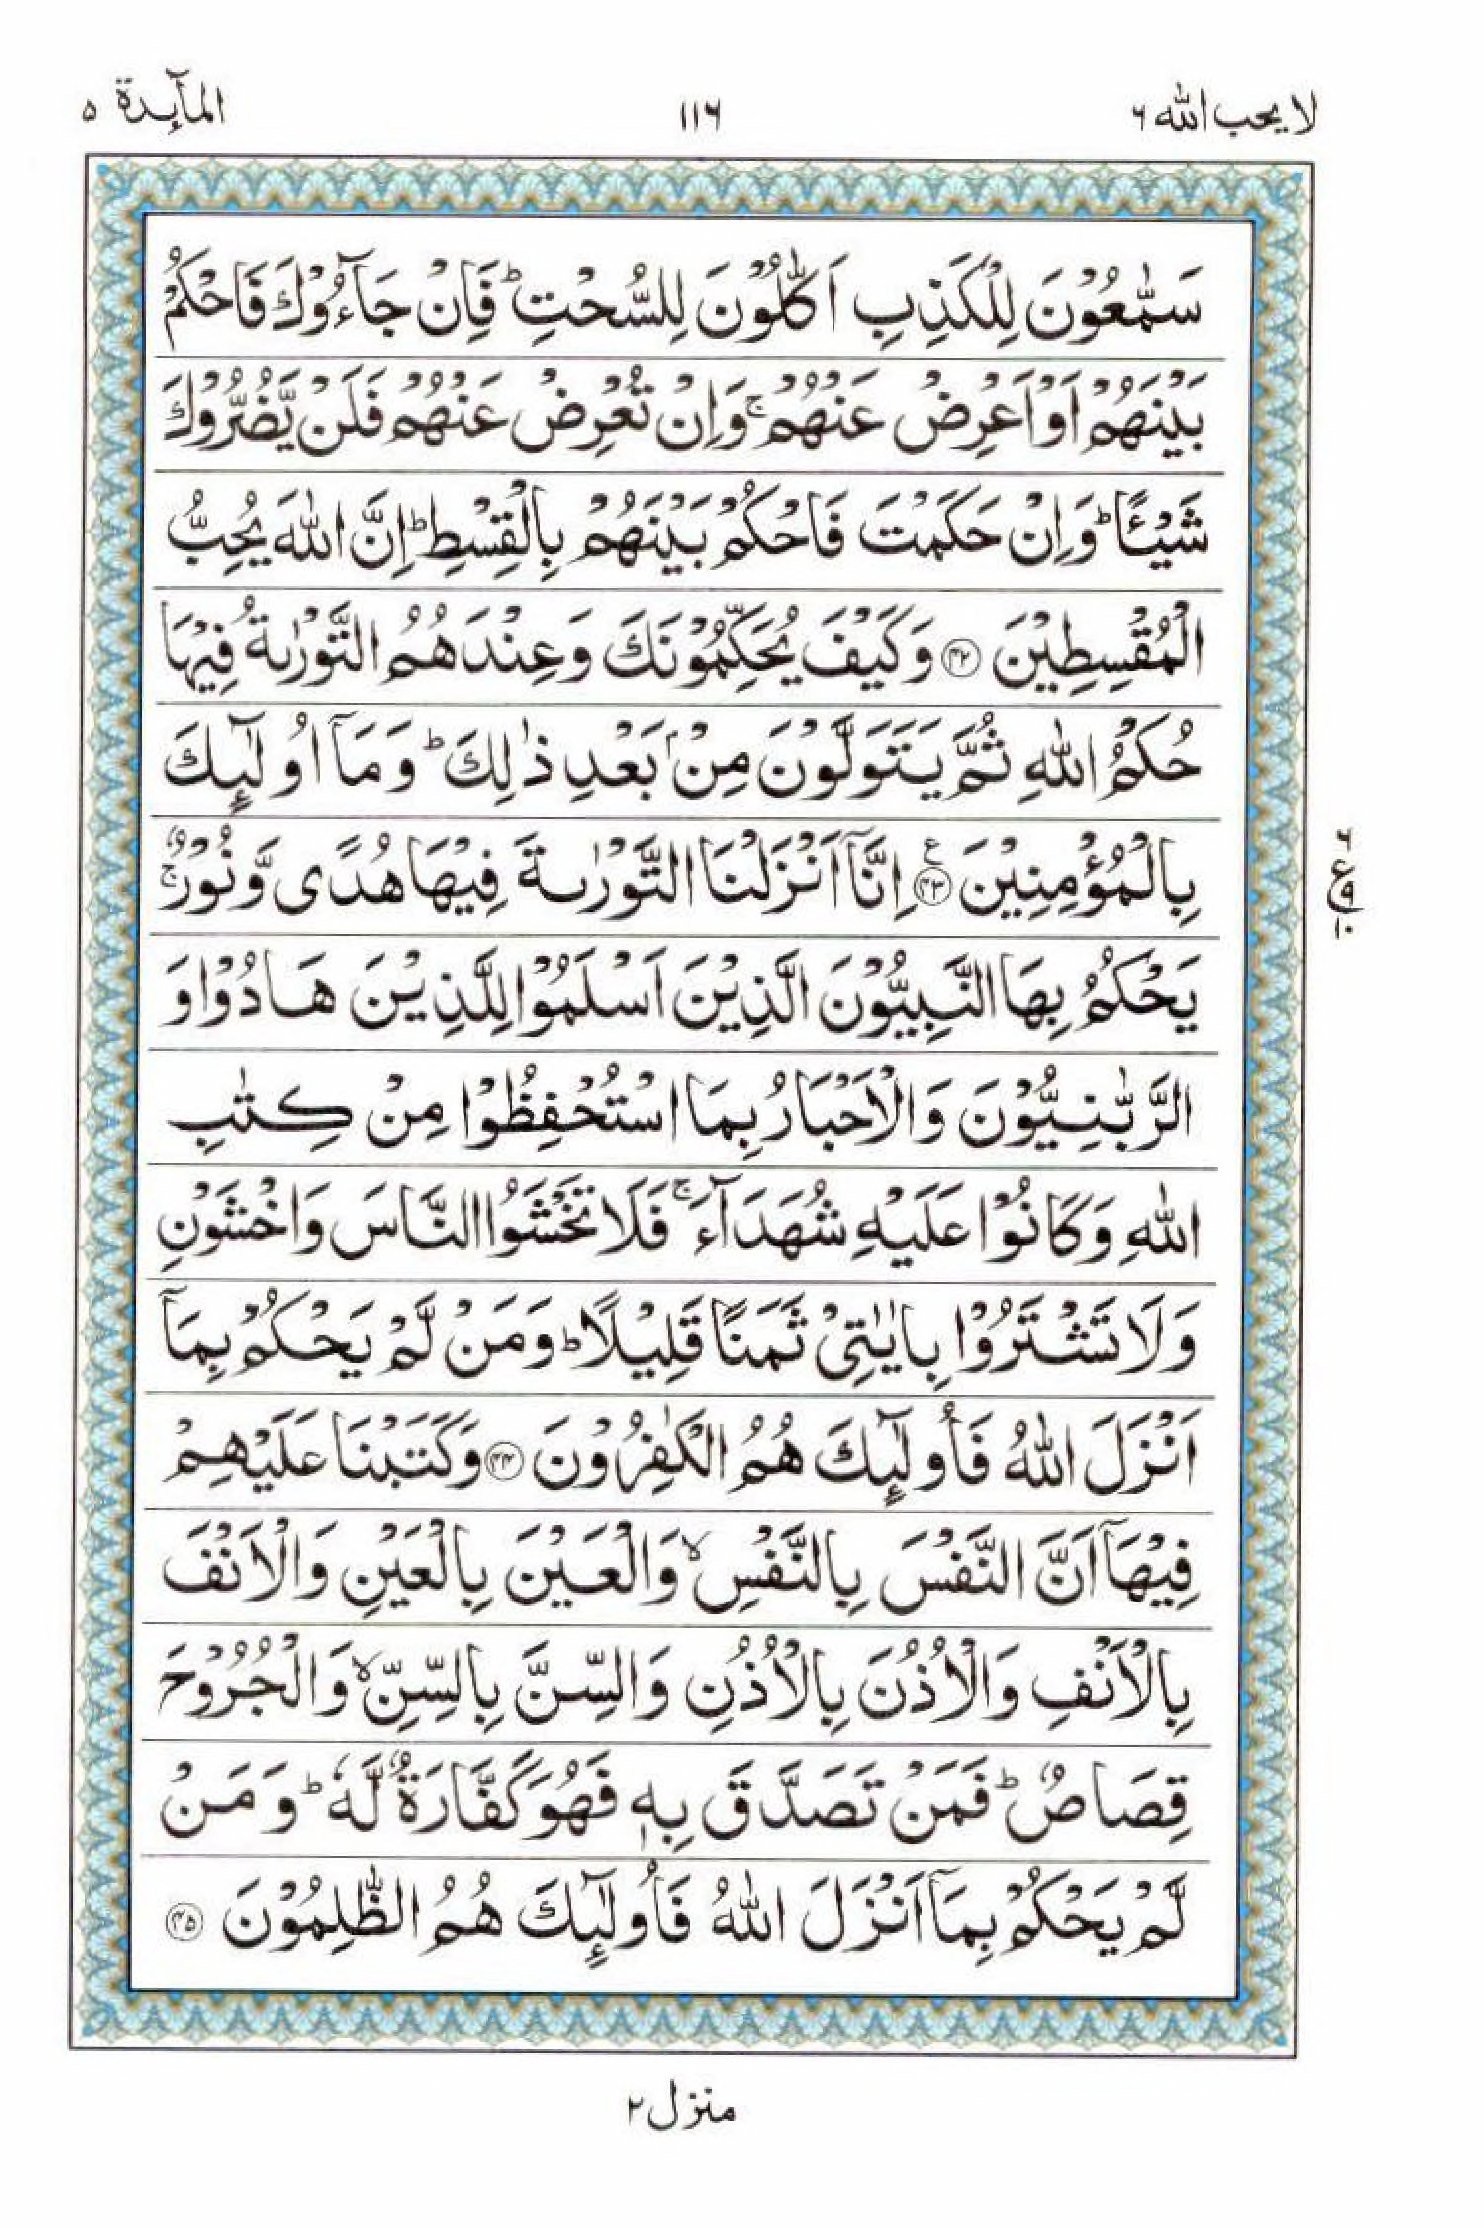 لا يحب الله ٦
١١٦
المآىِٕدة ٥
سَمّٰعُوْنَ لِلْكَذِبِ اَكّٰلُوْنَ لِلسُّحْتِ ؕ فَاِنْ جَآءُوْكَ فَاحْكُمْ
بَيْنَهُمْ اَوْ اَعْرِضْ عَنْهُمْ ۚ وَاِنْ تُعْرِضْ عَنْهُمْ فَلَنْ يَّضُرُّوْكَ
شَيْـًٔا ؕ وَاِنْ حَكَمْتَ فَاحْكُمْ بَيْنَهُمْ بِالْقِسْطِ ؕ اِنَّ اللّٰهَ يُحِبُّ
الْمُقْسِطِيْنَ ﴿۴۲﴾ وَكَيْفَ يُحَكِّمُوْنَكَ وَعِنْدَهُمُ التَّوْرٰىةُ فِيْهَا
حُكْمُ اللّٰهِ ثُمَّ يَتَوَلَّوْنَ مِنْۢ بَعْدِ ذٰلِكَ ؕ وَمَاۤ اُولٰٓىِٕكَ
بِالْمُؤْمِنِيْنَ ﴿۴۳﴾ ع اِنَّاۤ اَنْزَلْنَا التَّوْرٰىةَ فِيْهَا هُدًى وَّنُوْرٌ ۚ
يَحْكُمُ بِهَا النَّبِيُّوْنَ الَّذِيْنَ اَسْلَمُوْا لِلَّذِيْنَ هَادُوْا وَ
الرَّبّٰنِيُّوْنَ وَالْاَحْبَارُ بِمَا اسْتُحْفِظُوْا مِنْ كِتٰبِ
اللّٰهِ وَكَانُوْا عَلَيْهِ شُهَدَآءَ ۚ فَلَا تَخْشَوُا النَّاسَ وَاخْشَوْنِ
وَلَا تَشْتَرُوْا بِاٰيٰتِيْ ثَمَنًا قَلِيْلًا ؕ وَمَنْ لَّمْ يَحْكُمْ بِمَاۤ
اَنْزَلَ اللّٰهُ فَاُولٰٓىِٕكَ هُمُ الْكٰفِرُوْنَ ﴿۴۴﴾ وَكَتَبْنَا عَلَيْهِمْ
فِيْهَاۤ اَنَّ النَّفْسَ بِالنَّفْسِ ۙ وَالْعَيْنَ بِالْعَيْنِ وَالْاَنْفَ
بِالْاَنْفِ وَالْاُذُنَ بِالْاُذُنِ وَالسِّنَّ بِالسِّنِّ ۙ وَالْجُرُوْحَ
قِصَاصٌ ؕ فَمَنْ تَصَدَّقَ بِهٖ فَهُوَ كَفَّارَةٌ لَّهٗ ؕ وَمَنْ
لَّمْ يَحْكُمْ بِمَاۤ اَنْزَلَ اللّٰهُ فَاُولٰٓىِٕكَ هُمُ الظّٰلِمُوْنَ ﴿۴۵﴾
٦
ع ٩
١٠
منزل ٢